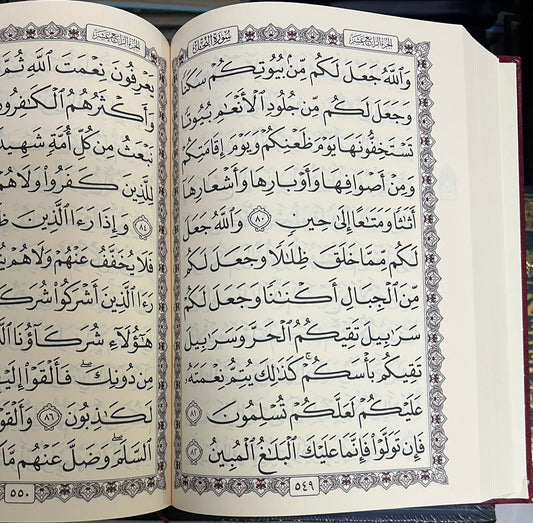 الجزء الرابع عشر
سورة النحل
وَٱللَّهُ جَعَلَ لَكُم مِّنۢ بُيُوتِكُمْ سَكَنًا
وَجَعَلَ لَكُم مِّن جُلُودِ ٱلْأَنْعَٰمِ بُيُوتًا
تَسْتَخِفُّونَهَا يَوْمَ ظَعْنِكُمْ وَيَوْمَ إِقَامَتِكُمْ
وَمِنْ أَصْوَافِهَا وَأَوْبَارِهَا وَأَشْعَارِهَا
أَثَٰثًا وَمَتَٰعًا إِلَىٰ حِينٍ ٨٠ وَٱللَّهُ جَعَلَ
لَكُم مِّمَّا خَلَقَ ظِلَٰلًا وَجَعَلَ لَكُم
مِّنَ ٱلْجِبَالِ أَكْنَٰنًا وَجَعَلَ لَكُمْ
سَرَٰبِيلَ تَقِيكُمُ ٱلْحَرَّ وَسَرَٰبِيلَ
تَقِيكُم بَأْسَكُمْ ۚ كَذَٰلِكَ يُتِمُّ نِعْمَتَهُۥ
عَلَيْكُمْ لَعَلَّكُمْ تُسْلِمُونَ ٨١
فَإِن تَوَلَّوْا۟ فَإِنَّمَا عَلَيْكَ ٱلْبَلَٰغُ ٱلْمُبِينُ ٨٢
٥٤٩
الجزء الرابع عشر
يَعْرِفُونَ نِعْمَتَ ٱللَّهِ ثُمَّ
وَأَكْثَرُهُمُ ٱلْكَٰفِرُو
نَبْعَثُ مِن كُلِّ أُمَّةٍ شَهِيدً
لِلَّذِينَ كَفَرُوا۟ وَلَا هُمْ
٨٤ وَإِذَا رَءَا ٱلَّذِينَ
فَلَا يُخَفَّفُ عَنْهُمْ وَلَا هُمْ
رَءَا ٱلَّذِينَ أَشْرَكُوا۟ شُرَكَا
هَٰٓؤُلَآءِ شُرَكَآؤُنَا
مِن دُونِكَ ۖ فَأَلْقَوْا۟ إِلَيْ
لَكَٰذِبُونَ ٨٦ وَأَلْقَوْ
ٱلسَّلَمَ ۖ وَضَلَّ عَنْهُم مَّا
٥٥٠